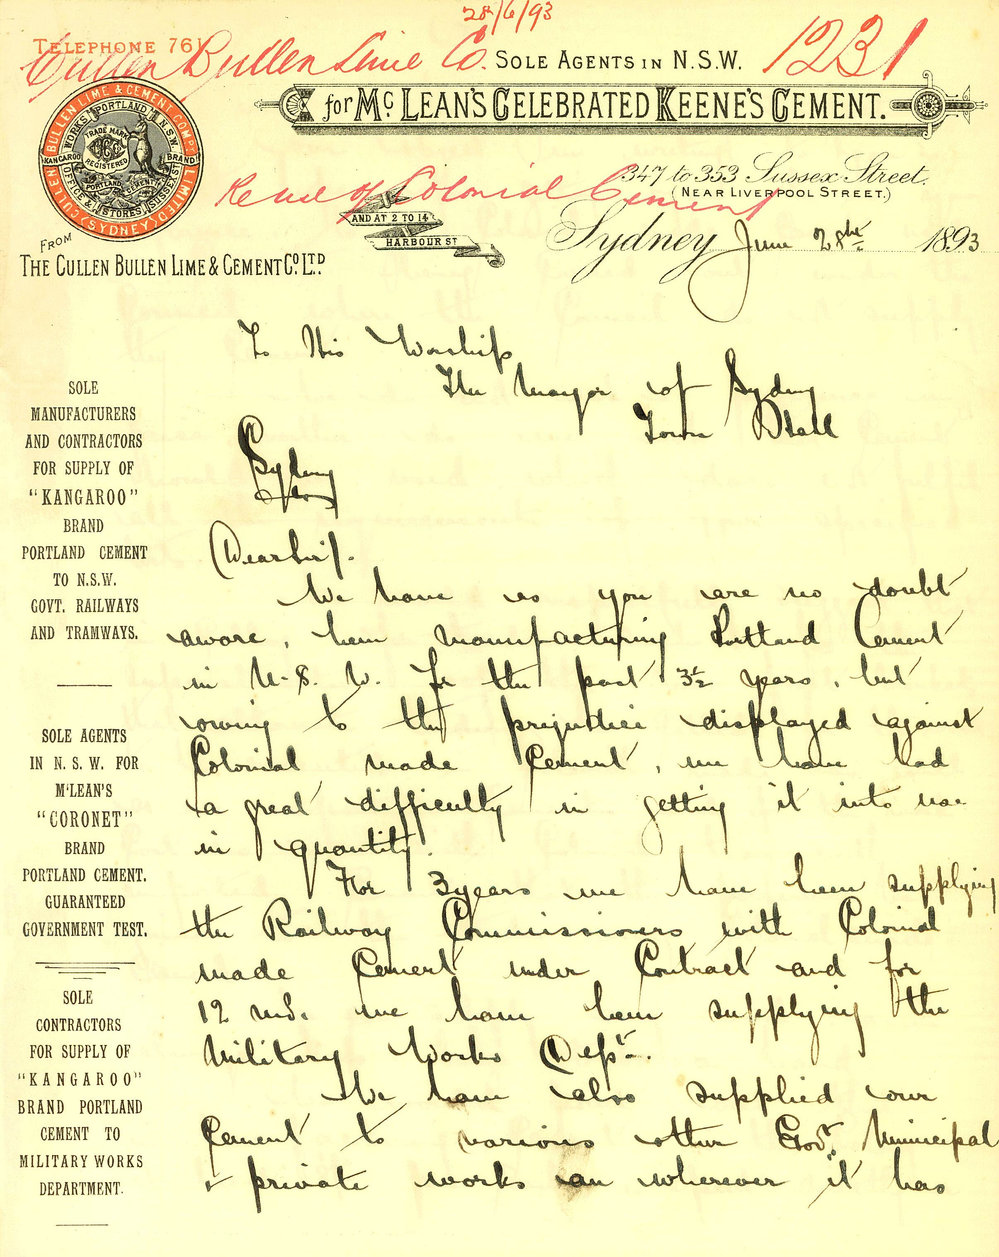 28/6/93
TELEPHONE 761
Cullen Bullen Lime Co.
1231
SOLE AGENTS IN N.S.W.
for Mc LEAN'S CELEBRATED KEENE'S CEMENT.
347 to 353 Sussex Street.
(NEAR LIVERPOOL STREET.)
of Colonial Cement
AND AT 2 TO 14
HARBOUR ST
Sydney June 28th 1893
CULLEN BULLEN LIME & CEMENT COMPY LIMITED
(SYDNEY)
WORKS, PORTLAND N.S.W.
TRADE MARK
REGISTERED
KANGAROO BRAND
PORTLAND CEMENT
OFFICE & STORES, SUSSEX ST
FROM
THE CULLEN BULLEN LIME & CEMENT CO. LTD
To His Worship
The Mayor of Sydney
Town Hall
Sydney
Dear Sir.
We have as you are no doubt
aware, been manufacturing Portland Cement
in N.S.W. for the past 3½ years, but
owing to the prejudice displayed against
Colonial made Cement, we have had
a great difficulty in getting it into use
in quantity.
For 3 years we have been supplying
the Railway Commissioners with Colonial
made Cement under Contract and for
12 ms. we have been supplying the
Military Works Dept.
We have also supplied our
Cement to various other Govt. Municipal
& private works an wherever it has
SOLE
MANUFACTURERS
AND CONTRACTORS
FOR SUPPLY OF
"KANGAROO"
BRAND
PORTLAND CEMENT
TO N.S.W.
GOVT. RAILWAYS
AND TRAMWAYS.
SOLE AGENTS
IN N. S. W. FOR
McLEAN'S
"CORONET"
BRAND
PORTLAND CEMENT.
GUARANTEED
GOVERNMENT TEST.
SOLE
CONTRACTORS
FOR SUPPLY OF
"KANGAROO"
BRAND PORTLAND
CEMENT TO
MILITARY WORKS
DEPARTMENT.